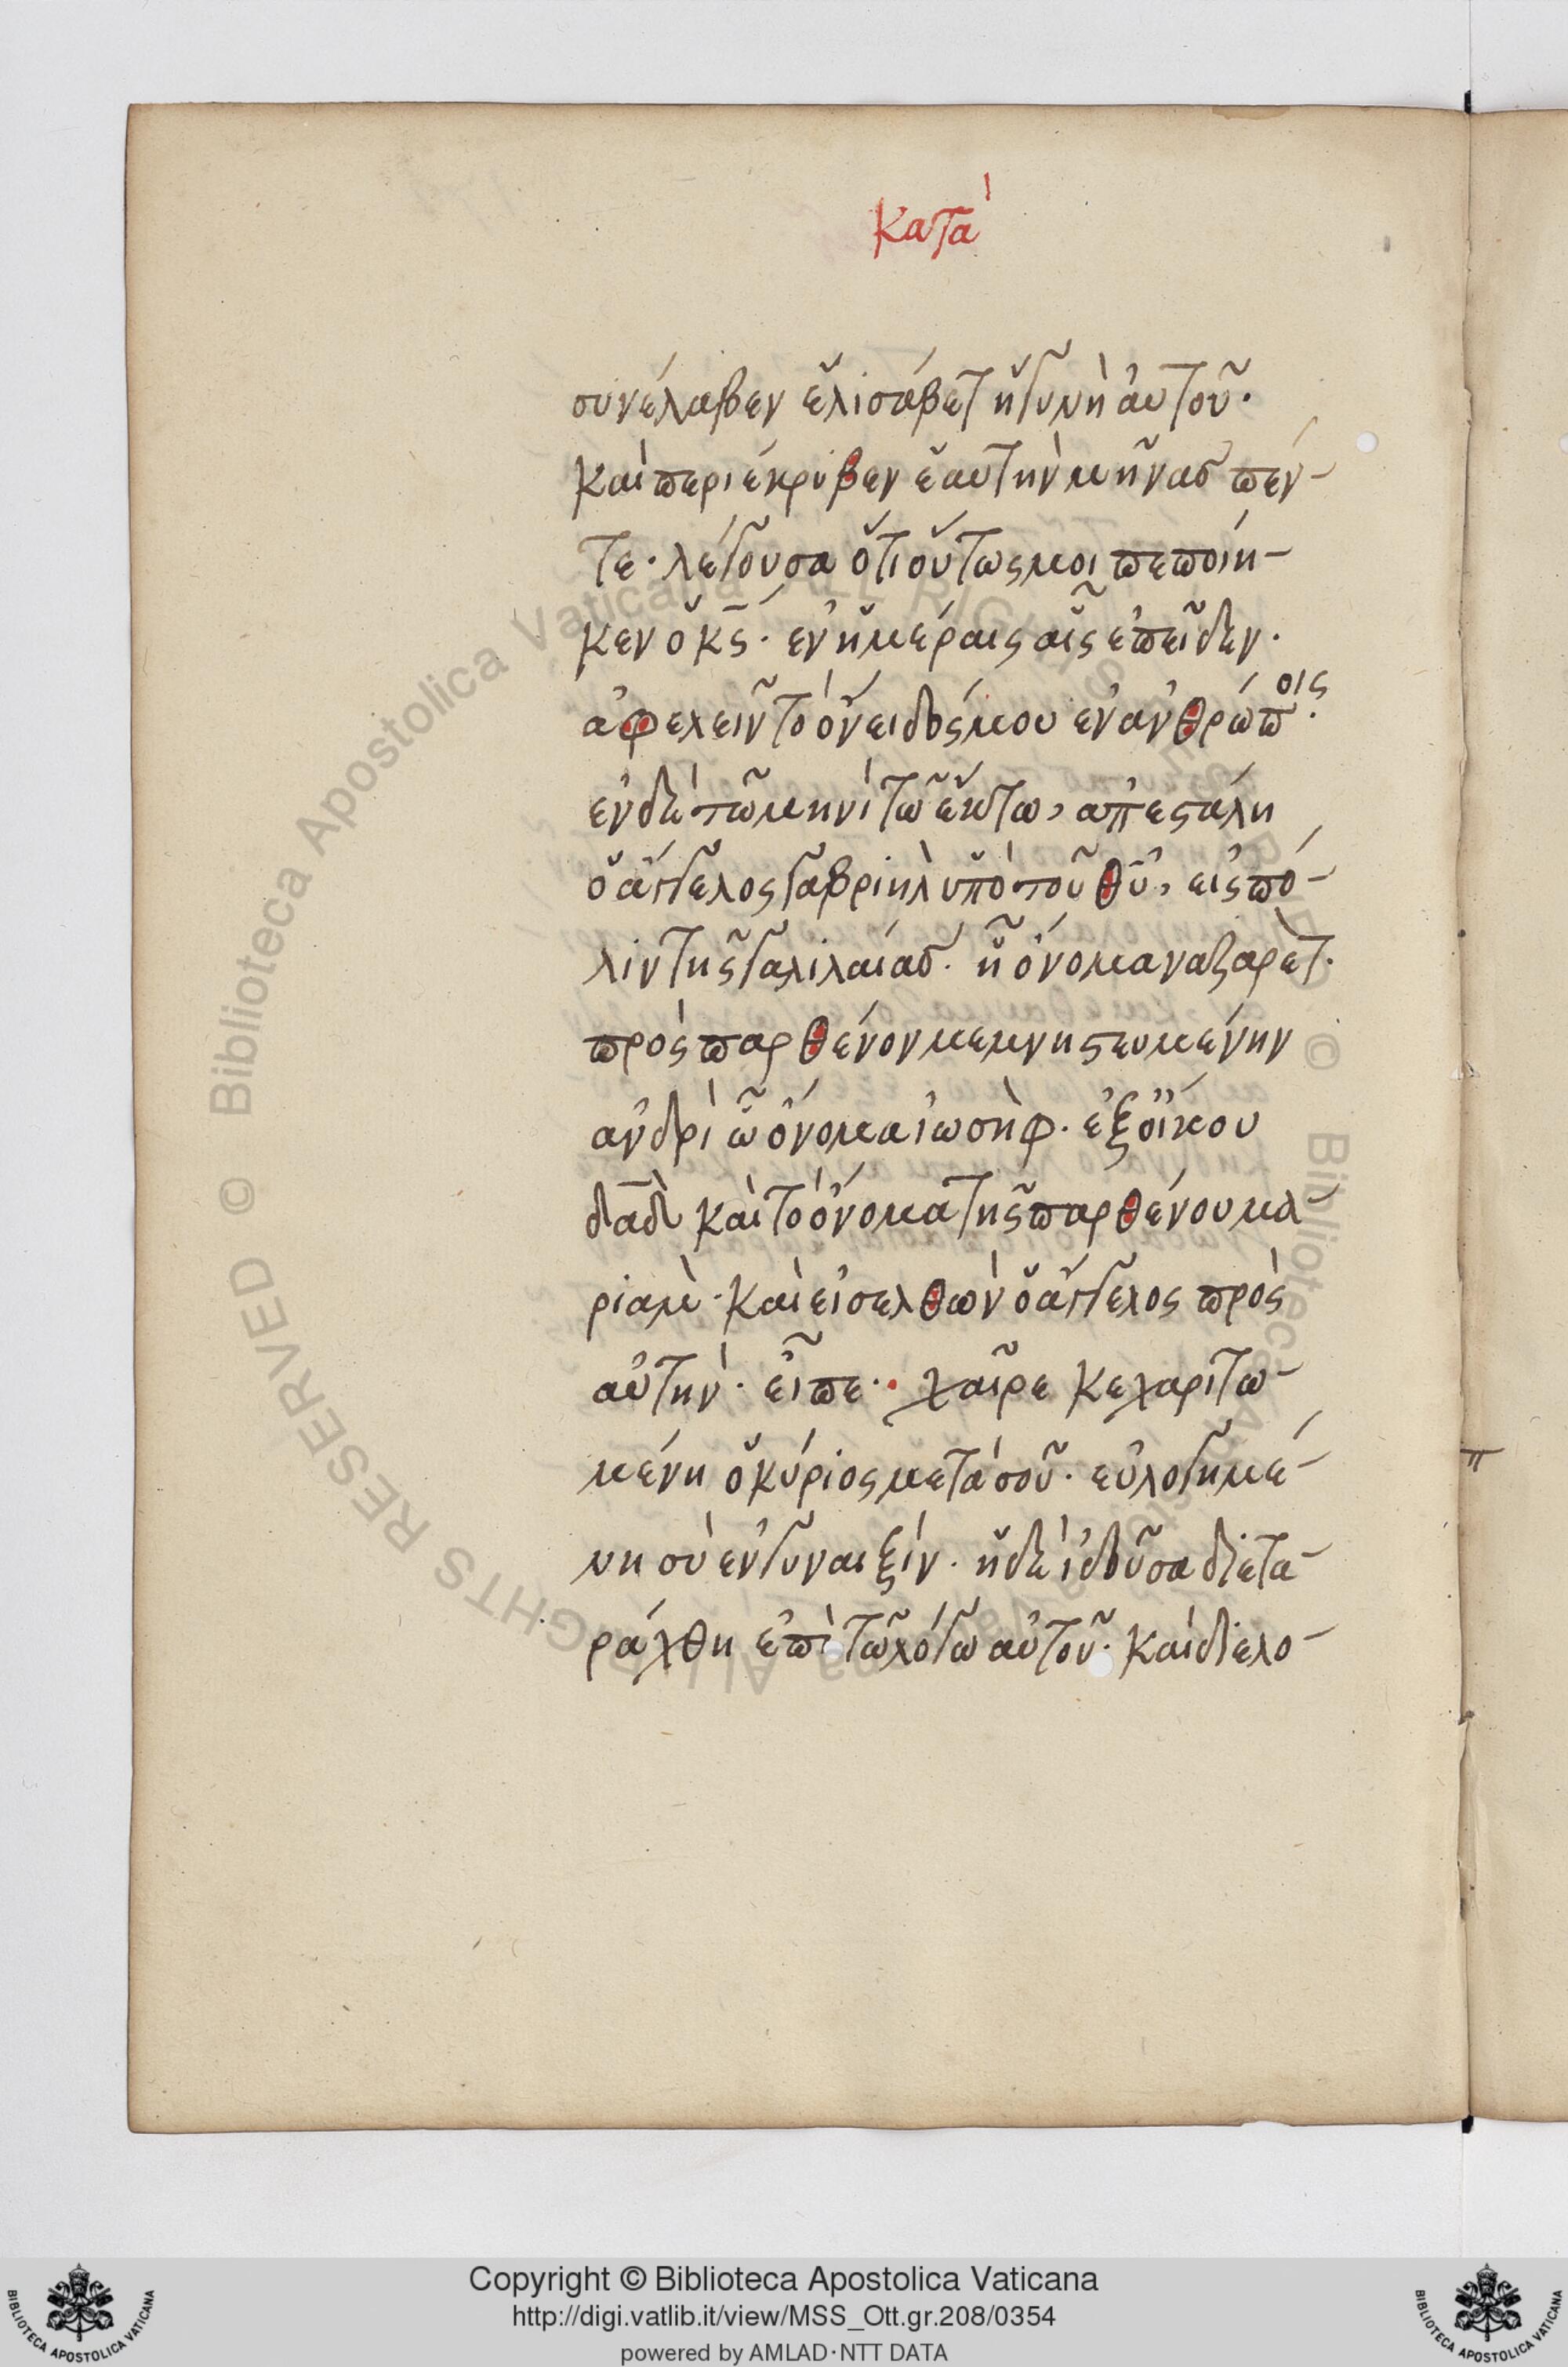 Κατὰ
συνέλαβεν ἐλισάβετ ἡ γυνὴ ἀυτοῦ·
Καὶ περιέκρυβεν ἑαυτὴν μῆνας πέν-
τε· λέγουσα ὅτι οὕτως μοι πεποίη-
κεν ὁ κ̅ς̅· ἐν ἡμέραις αἷς ἐπεῖδεν·
ἀφελεῖν τὸ ὄνειδός μου ἐν ἀνθρώποις·
ἐν δὲ τῶ μηνὶ τῶ ἕκτω, ἀπεστάλη
ὁ ἄγγελος γαβριὴλ ὑπὸ τοῦ θ̅υ̅, εἰς πό-
λιν τῆς γαλιλαίας· ἧ ὄνομα ναζαρὲτ·
πρὸς παρθένον μεμνηστευμένην
ἀνδρὶ ὧ ὄνομα ἰωσὴφ· ἐξ οἴκου
δα̅δ̅ καὶ τὸ ὄνομα τῆς παρθένου μα-
ριὰμ· Καὶ εἰσελθὼν ὁ ἄγγελος πρὸς
αὐτὴν· εἶπε· χαῖρε κεχαριτω-
μένη ὁ κύριος μετὰ σοῦ· εὐλογημέ-
νη σὺ ἐν γυναιξίν· ἡ δὲ ἰδοῦσα διετα-
ράχθη ἐπὶ τῶ λόγω αὐτοῦ· Καὶ διελο-
π
Copyright © Biblioteca Apostolica Vaticana
http://digi.vatlib.it/view/MSS_Ott.gr.208/0354
powered by AMLAD·NTT DATA
BIBLIOTECA APOSTOLICA VATICANA
BIBLIOTECA APOSTOLICA VATICANA